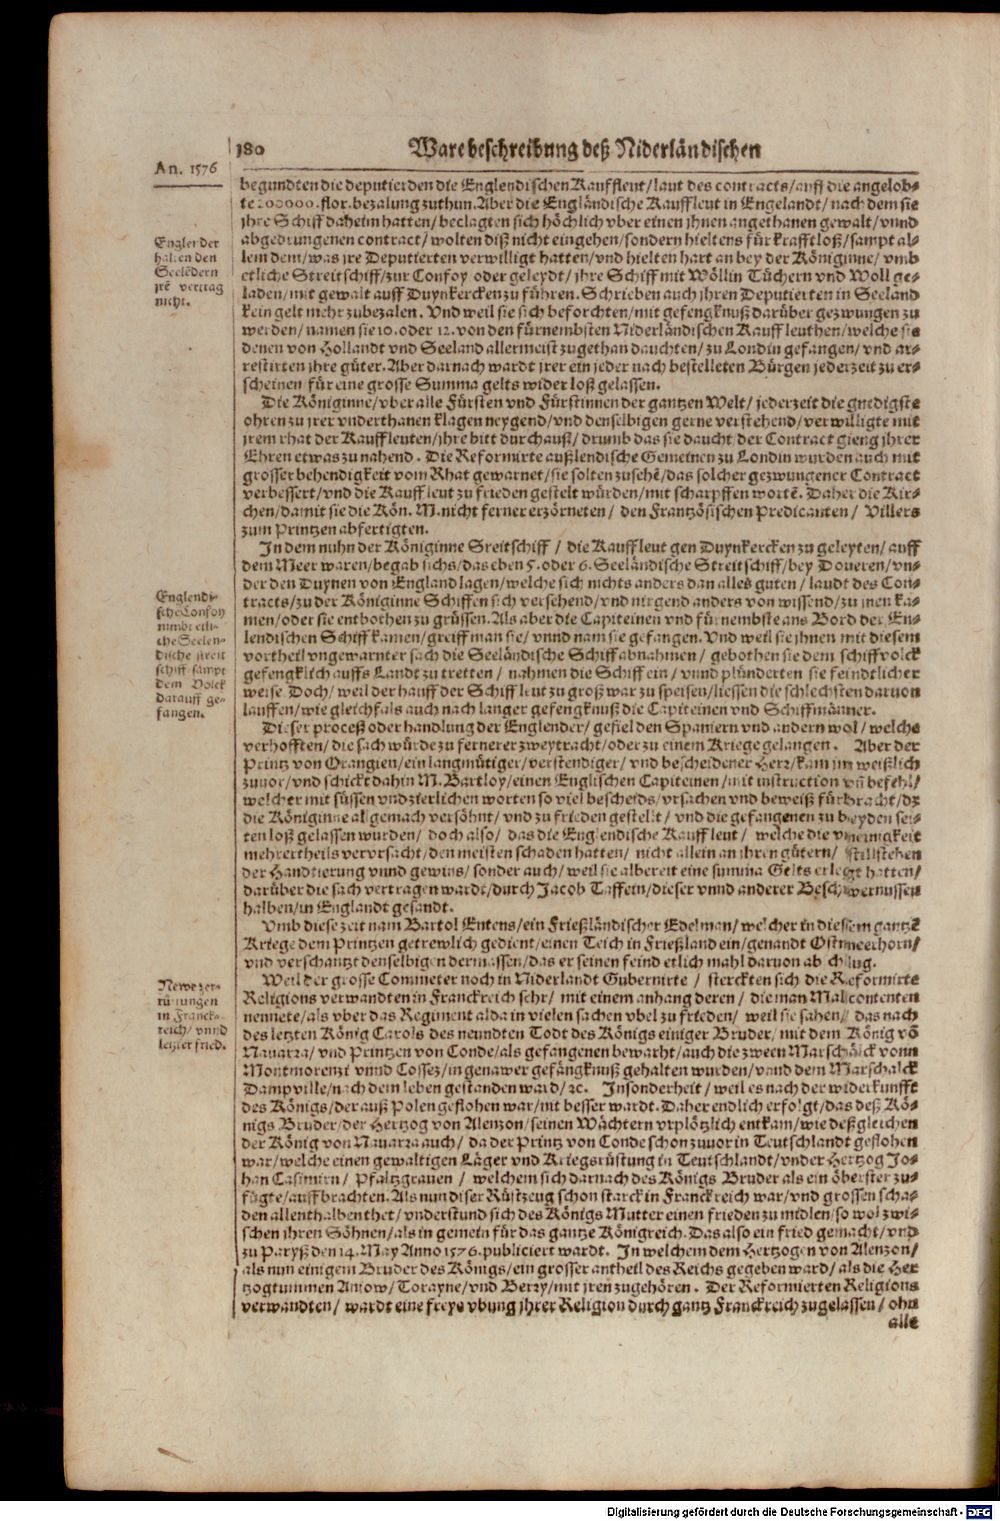 180
Ware beschreibung deß Niderländischen
An. 1576
begundten die deputierden die Englendischen Kauffleut/laut des contracts/auff die angelob-
te 200000.flor.bezalung zuthun. Aber die Engländische Kauffleut in Engelandt/nach dem sie
jhre Schiff daheim hatten/beclagten sich höchlich vber einen jhnen angethanen gewalt/vnnd
abgedrungenen contract/wolten diß nicht eingehen/sondern hieltens für krafftloß/sampt al-
lem dem/was jre Deputierten verwilligt hatten/vnd hielten hart an bey der Königinne/vmb
etliche Streitschiff/zur Confoy oder geleydt/jhre Schiff mit Wöllin Tüchern vnd Woll ge-
laden/mit gewalt auff Duynkercken zu führen. Schrieben auch jhren Deputierten in Seeland
kein gelt mehr zubezalen. Vnd weil sie sich beforchten/mit gefengknuß darüber gezwungen zu
werden/namen sie 10. oder 12. von den fürnembsten Niderländischen Kauffleuthen/welche sie
denen von Hollandt vnd Seeland allermeist zugethan dauchten/zu Londin gefangen/vnd ar-
restirten jhre güter. Aber darnach wardt jrer ein jeder nach bestelleten Bürgen jederzeit zu er-
scheinen für eine grosse Summa gelts wider loß gelassen.
Engler der
halten den
Seelēdern
jrē vertrag
nicht.
Die Königinne/vber alle Fürsten vnd Fürstinnen der gantzen Welt/jederzeit die gnedigste
ohren zu jrer vnderthanen klagen neygend/vnd denselbigen gerne verstehend/verwilligte mit
jrem rhat der Kauffleuten/jhre bitt durchauß/drumb das sie daucht/der Contract gieng jhrer
Ehren etwas zu nahend. Die Reformirte außlendische Gemeinen zu Londin wurden auch mit
grosser behendigkeit vom Rhat gewarnet/sie solten zusehē/das solcher gezwungener Contract
verbessert/vnd die Kauffleut zu frieden gestelt würden/mit scharpffen wortē. Daher die Kir-
chen/damit sie die Kön. M. nicht ferner erzörneten/ den Frantzösischen Predicanten/ Villers
zum Printzen abfertigten.
In dem nuhn der Königinne Sreitschiff / die Kauffleut gen Duynkercken zu geleyten/ auff
dem Meer waren/begab sichs/das eben 5. oder 6. Seeländische Streitschiff/bey Doueren/vn-
der den Duynen von England lagen/welche sich nichts anders dan alles guten / laudt des Con-
tracts/zu der Königinne Schiffen sich versehend/vnd nirgend anders von wissend/zu jnen ka-
men/oder sie entbothen zu grüssen. Als aber die Capiteinen vnd fürnembste ans Bord der En-
lendischen Schiff kamen/greiff man sie/ vnnd nam sie gefangen. Vnd weil sie jhnen mit diesem
vortheil vngewarnter sach die Seeländische Schiff abnahmen/ gebothen sie dem schiffvolck
gefengklich auffs Landt zu tretten/ nahmen die Schiff ein/ vnnd plünderten sie feindtlicher
weise. Doch/ weil der hauff der Schiffleut zu groß war zu speisen/liessen die schlechsten daruon
lauffen/wie gleichfals auch nach langer gefengknuß die Capiteinen vnd Schiffmänner.
Englendi-
sche Confoy
nimbt etli-
che Seelen-
dische streit
schiff sampt
dem Volck
darauff ge-
fangen.
Dieser proceß oder handlung der Englender/ gefiel den Spaniern vnd andern wol/ welche
verhofften/die sach würde zu fernerer zweytracht/oder zu einem Kriege gelangen. Aber der
Printz von Orangien/ein langmütiger/verstendiger/ vnd bescheidener Herr/kam jm weißlich
zuuor/vnd schickt dahin M. Bartloy/einen Englischen Capiteinen/mit instruction vñ befehl/
welcher mit süssen vnd zierlichen worten so viel bescheids/vrsachen vnd beweiß fürbracht/dz
die Königinne allgemach versöhnt/ vnd zu frieden gestellt/ vnd die gefangenen zu beyden sei-
ten loß gelassen wurden/ doch also/ das die Englendische Kauffleut/ welche die vneinigkeit
mehrertheils vervrsacht/den meisten schaden hatten/ nicht allein an jhren gütern/ stillstehen
der Handtierung vnnd gewins/ sonder auch/ weil sie albereit eine summa Gelts erlegt hatten/
darüber die sach vertragen wardt/durch Jacob Taffein/dieser vnnd anderer Beschwernussen
halben/in Englandt gesandt.
Vmb diese zeit nam Bartol Entens/ein Frießländischer Edelman/welcher in diesem gantzē
Kriege dem Printzen getrewlich gedient/einen Teich in Frießland ein/genandt Ostmeerhorn/
vnd verschantzt denselbigen dermassen/das er seinen feind etlich mahl daruon abschlug.
Weil der grosse Commeter noch in Niderlandt Gubernirte/ sterckten sich die Reformirte
Religions verwandten in Franckreich sehr/ mit einem anhang deren/ die man Malcontenten
nennete/als vber das Regiment alda in vielen sachen vbel zu frieden/ weil sie sahen/ das nach
des letzten König Carols des neundten Todt des Königs einiger Bruder/mit dem König vō
Nauarra/vnd Printzen von Conde/als gefangenen bewarht/auch die zween Marschalck vonn
Montmorenzi vnnd Cossez/in genawer gefängknuß gehalten wurden/vnnd dem Marschalck
Dampville/nach dem leben gestanden ward/ꝛc. Insonderheit/weil es nach der widerkunfft
des Königs/der auß Polen geflohen war/nit besser wardt. Daher endlich erfolgt/das deß Kö-
nigs Bruder/der Hertzog von Alenzon/seinen Wächtern vrplötzlich entkam/wie deßgleichen
der König von Nauarra auch/ da der Printz von Conde schon zuuor in Teutschlandt geflohen
war/welche einen gewaltigen Läger vnd Kriegsrüstung in Teutschlandt/vnder Hertzog Jo-
han Casimirn/ Pfaltzgrauen/ welchem sich darnach des Königs Bruder als ein öberster zu-
fügte/auffbrachten. Als nun diser Rüstzeug schon starck in Franckreich war/vnd grossen scha-
den allenthalben thet/vnderstund sich des Königs Mutter einen frieden zu midlen/so wol zwi-
schen jhren Söhnen/als in gemein für das gantze Königreich. Das also ein fried gemacht/vnd
zu Paryß den 14. May Anno 1576. publiciert wardt. In welchem dem Hertzogen von Alenzon/
als nun einigem Bruder des Königs/ein grosser antheil des Reichs gegeben ward/als die Her
tzogtummen Aniow/Torayne/vnd Berry/mit jren zugehören. Der Reformierten Religions
verwandten/ wardt eine freye vbung jhrer Religion durch gantz Franckreich zugelassen/ ohn
alle
Newe zer-
rüttungen
in Franck-
reich/vnnd
letzter fried.
Digitalisierung gefördert durch die Deutsche Forschungsgemeinschaft - DFG